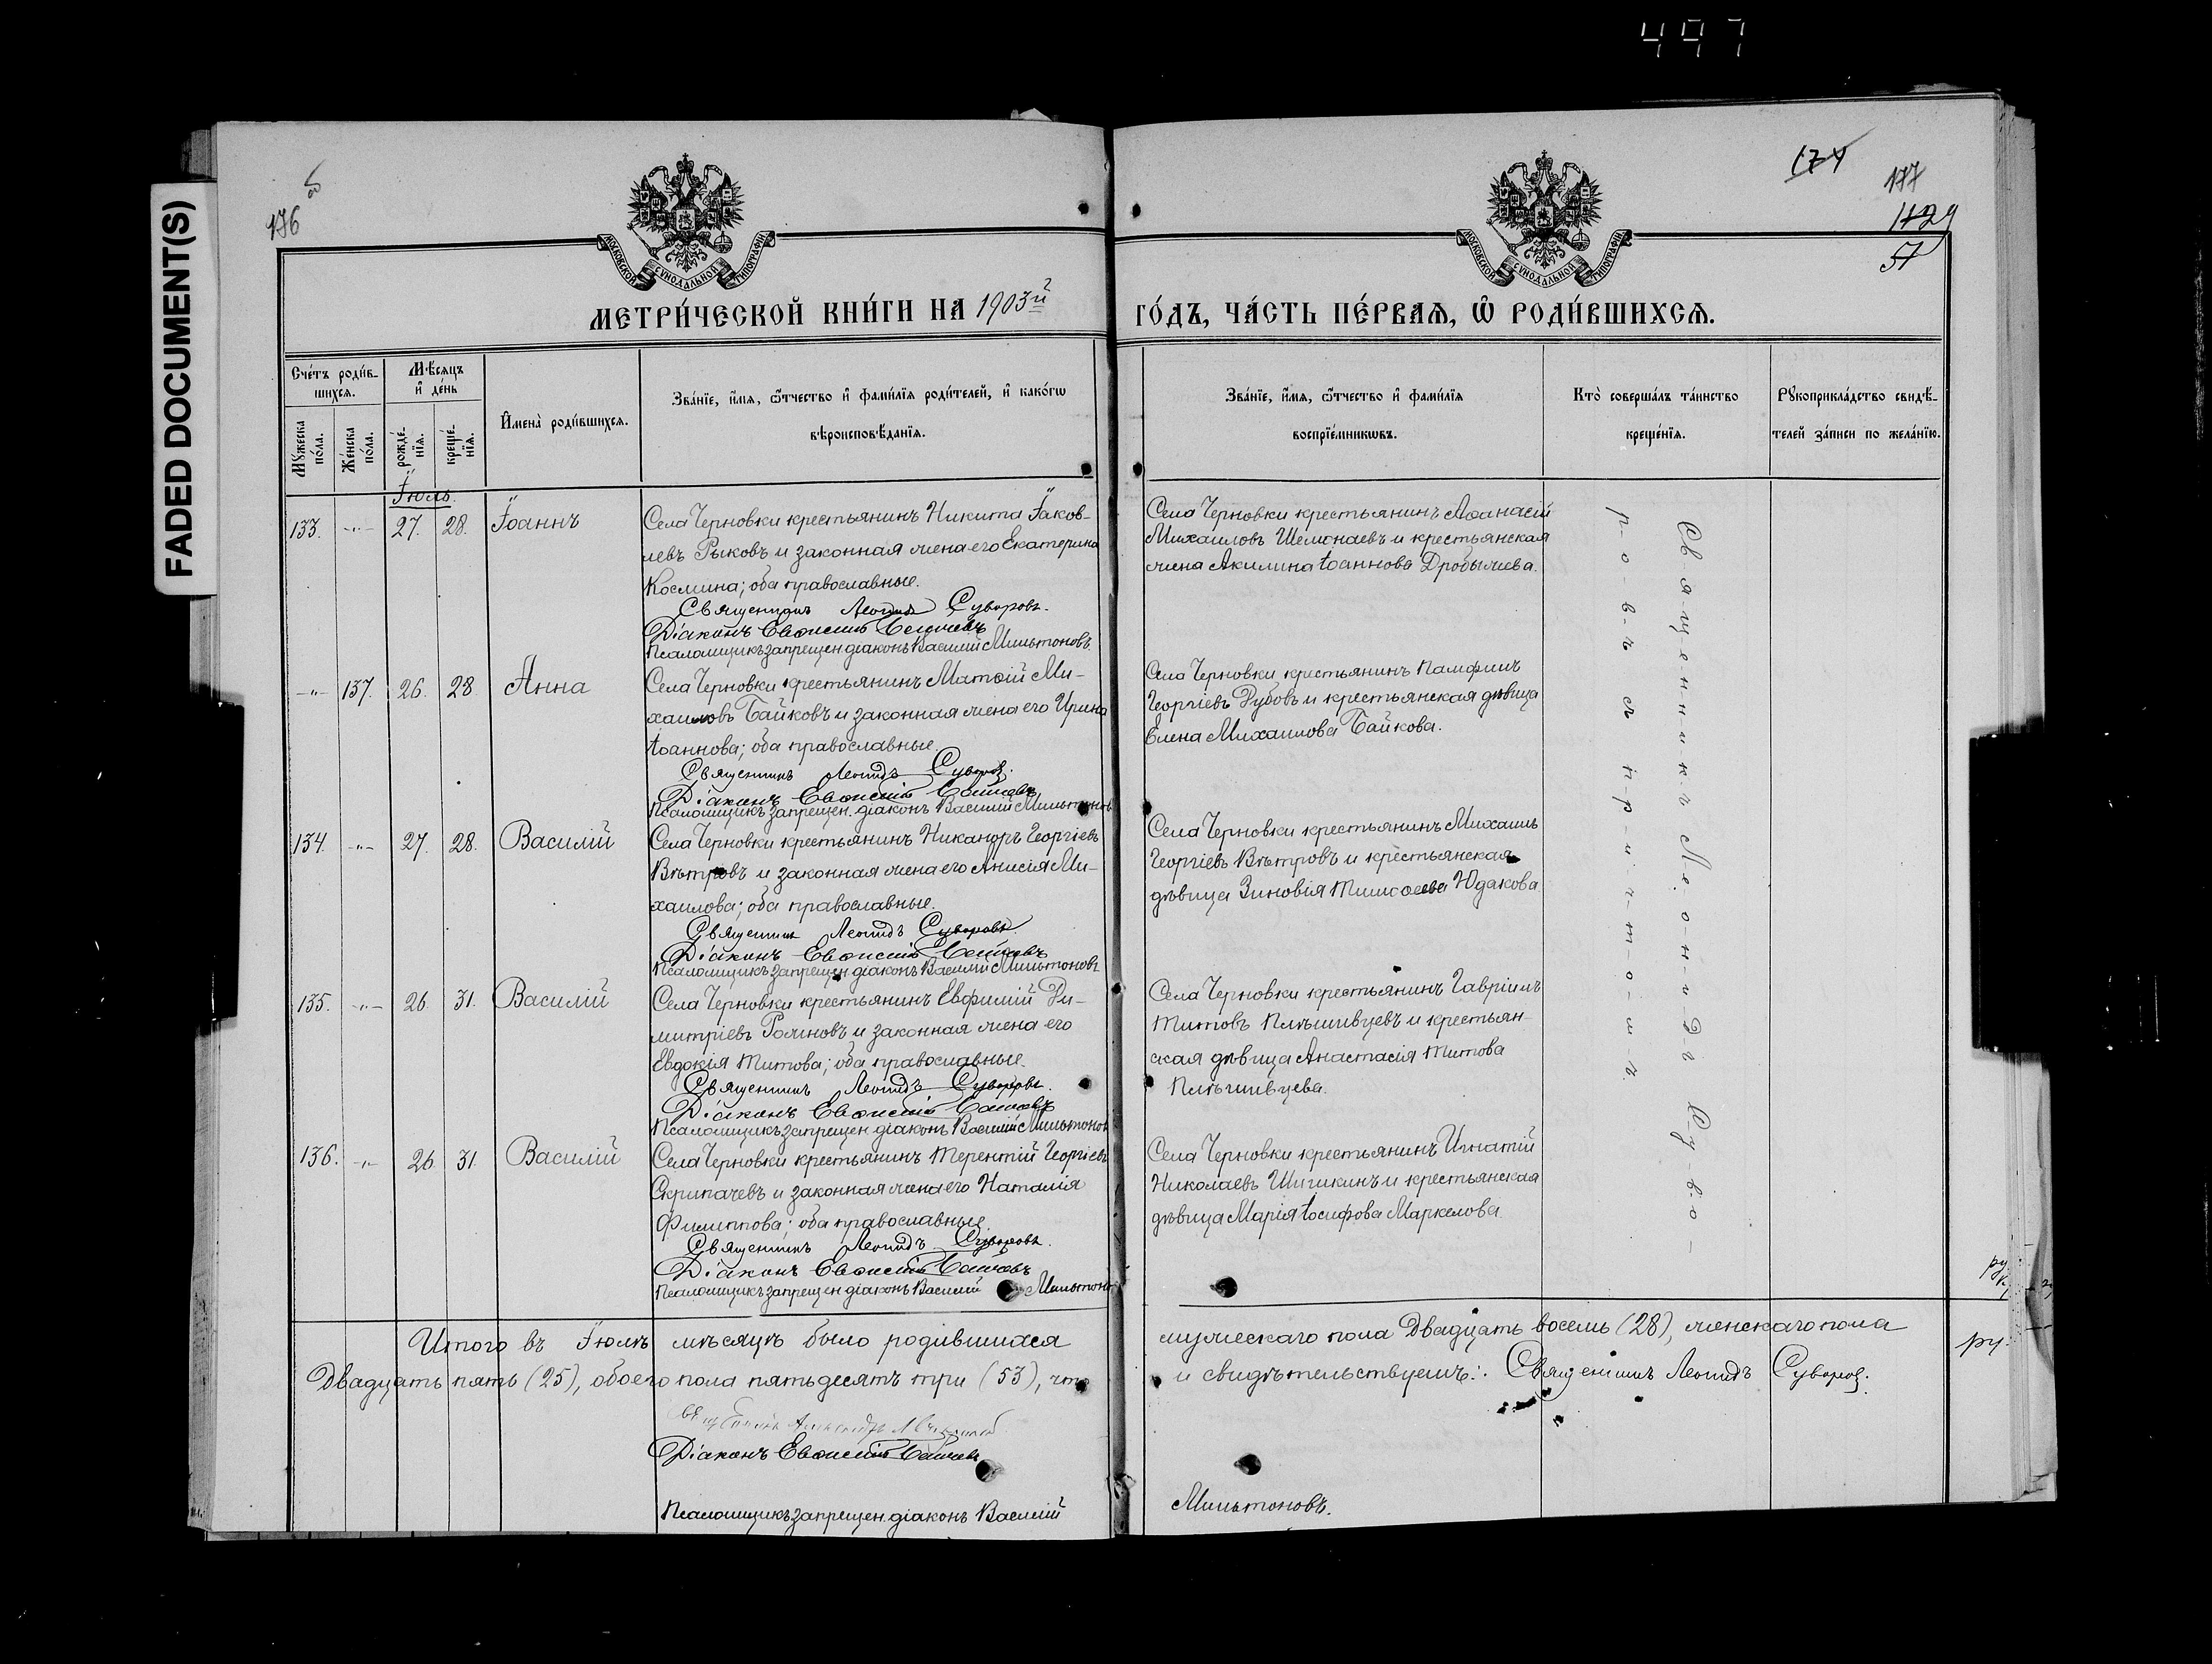 497
FADED DOCUMENT(S)
176 об
174
177
1129
57
МОСКОВСКОЙ СѴНОДАЛЬНОЙ ТИПОГРАФІИ
МОСКОВСКОЙ СѴНОДАЛЬНОЙ ТИПОГРАФІИ
МЕТРИ́ЧЕСКОЙ КНИ́ГИ НА 1903й ГО́ДЪ, ЧА́СТЬ ПЕ́РВАѦ, Ѽ РОДИ́ВШИХСѦ.
Сче́тъ роди́в-
шихсѧ.
Мѹ́жеска по́ла.
Же́нска по́ла.
Мѣ́сѧцъ и҆ де́нь
рожде́-нїѧ.
креще́-нїѧ.
И҆мена̀ роди́вшихсѧ.
Зва́нїе, и҆́мѧ, ѿтчество и҆ фами́лїѧ роди́телей, и҆ како́гѡ
вѣроисповѣ́данїѧ.
Зва́нїе, и҆́мѧ, ѿтчество и҆ фами́лїѧ
воспрїе́мникѡвъ.
Кто̀ соверша́лъ та́инство
креще́нїѧ.
Рꙋкоприкла́дство свидѣ́-
телей за́писи по жела́нїю.
Іюль.
133. -„- 27. 28. Іоаннъ
Села Черновки крестьянинъ Никита Іаков-
левъ Рыковъ и законная жена его Екатерина
Космина; оба православные.
Священникъ Леонидъ Суворовъ.
Діаконъ Евѳимій
Псаломщикъ запрещен діаконъ Василій Мильтоновъ.
Села Черновки крестьянинъ Аѳанасій
Михаиловъ Шемонаевъ и крестьянская
жена Акилина Іоаннова Дробычева.
-„- 137. 26. 28. Анна
Села Черновки крестьянинъ Матѳій Ми-
хаиловъ Байковъ и законная жена его Ирина
Іоаннова; оба православные.
Священникъ Леонидъ Суворовъ.
Діаконъ Евѳимій
Псаломщикъ запрещен. діаконъ Василій Мильтонов
Села Черновки крестьянинъ Памфилъ
Георгіевъ Дубовъ и крестьянская дѣвица
Елена Михаилова Байкова.
134. -„- 27. 28. Василій
Села Черновки крестьянинъ Никаноръ Георгіевъ
Вѣтровъ и законная жена его Анисія Ми-
хаилова; оба православные.
Священникъ Леонидъ Суворовъ.
Діаконъ Евѳимій
Псаломщикъ запрещен. діаконъ Василій Мильтоновъ
Села Черновки крестьянинъ Михаилъ
Георгіевъ Вѣтровъ и крестьянская
дѣвица Зиновія Тимоѳеева Юдакова.
135. -„- 26. 31. Василій
Села Черновки крестьянинъ Евфимій Ди-
митріевъ Рожновъ и законная жена его
Евдокія Титова; оба православные.
Священникъ Леонидъ Суворовъ.
Діаконъ Евѳимій
Псаломщикъ запрещен діаконъ Василій Мильтонов
Села Черновки крестьянинъ Гавріилъ
Титовъ Плѣшивцевъ и крестьян-
ская дѣвица Анастасія Титова
Плѣшивцева.
136. -„- 26. 31. Василій
Села Черновки крестьянинъ Терентій Георгіевъ
Скрипачевъ и законная жена его Наталія
Филиппова; оба православные.
Священникъ Леонидъ Суворовъ.
Діаконъ Евѳимій
Псаломщикъ запрещен діаконъ Василій Мильтонов
Села Черновки крестьянинъ Игнатій
Николаевъ Шигикинъ и крестьянская
дѣвица Марія Іосифова Маркелова
Священникъ Леонидъ Суво-
ровъ съ причтомъ
Итого въ Іюлѣ мѣсяцѣ было родившихся мужескаго пола двадцать восемь (28), женскаго пола
двадцать пять (25), обоего пола пятьдесятъ три (53), что и свидѣтельствуемъ: Священникъ Леонидъ Суворов.
Діаконъ Евѳимій
Псаломщикъ запрещен. діаконъ Василій Мильтоновъ.
ру.